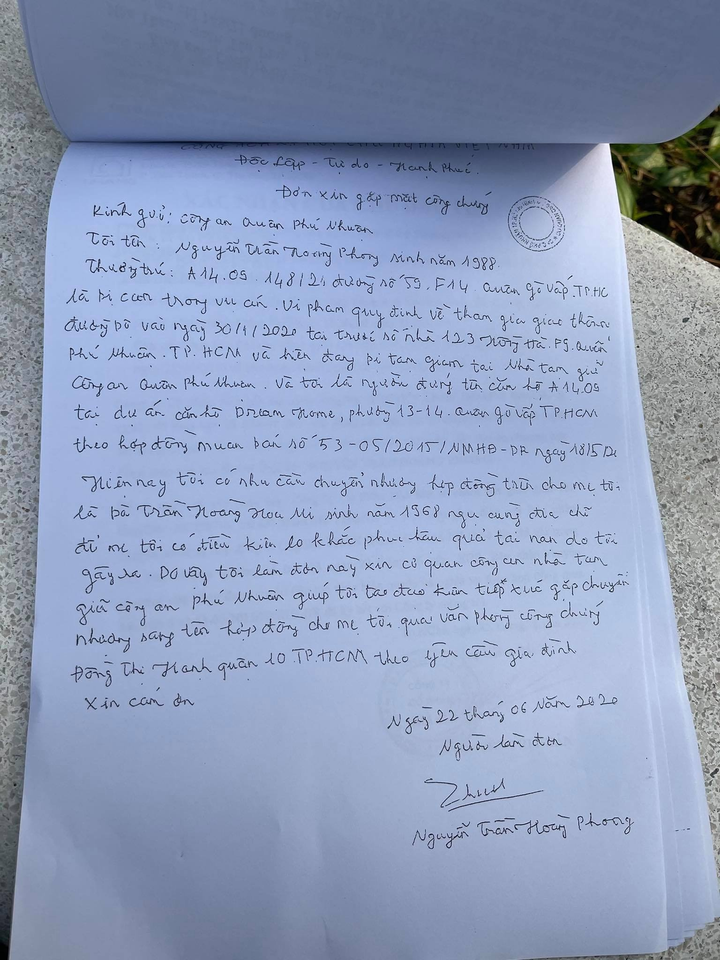 Độc lập - Tự do - Hạnh Phúc.
Đơn xin gặp mặt công chứng
Kính gửi: Công an Quận Phú Nhuận
Tôi tên: Nguyễn Trần Hoàng Phong sinh năm 1988.
Thường trú: A14.09. 148/24 đường số 59. F14. Quận gò vấp. TP.HC
là bị can trong vụ án. Vi phạm quy định về tham gia giao thông
đường bộ vào ngày 30/1/2020 tại trước số nhà 123 F9. Quận
Phú Nhuận. TP. HCM và hiện đang bị tạm giam tại Nhà tạm giữ
Công an Quận Phú Nhuận. Và tôi là người đứng tên căn hộ A14.09
tại dự án căn hộ Dream Home, phường 13-14. Quận gò vấp TP.HCM
theo hợp đồng mua bán số 53-05/2015/NMHĐ-DR ngày
Hiện nay tôi có nhu cầu chuyển nhượng hợp đồng trên cho mẹ tôi
là bà Trần Hoàng Hoa Mi sinh năm 1968 ngụ cùng địa chỉ
để mẹ tôi có điều kiện lo khắc phục hậu quả tai nạn do tôi
gây ra. Do vậy tôi làm đơn này xin cơ quan công an nhà tạm
giữ công an phú Nhuận giúp tôi tạo điều kiện tiếp xúc gặp chuyển
nhượng sang tên hợp đồng cho mẹ tôi qua văn phòng công chứng
Đồng Thị Hạnh quận 10 TP.HCM theo yêu cầu gia đình
Xin cám ơn
Ngày 22 tháng 06 Năm 2020
Người làm đơn
Nguyễn Trần Hoàng Phong